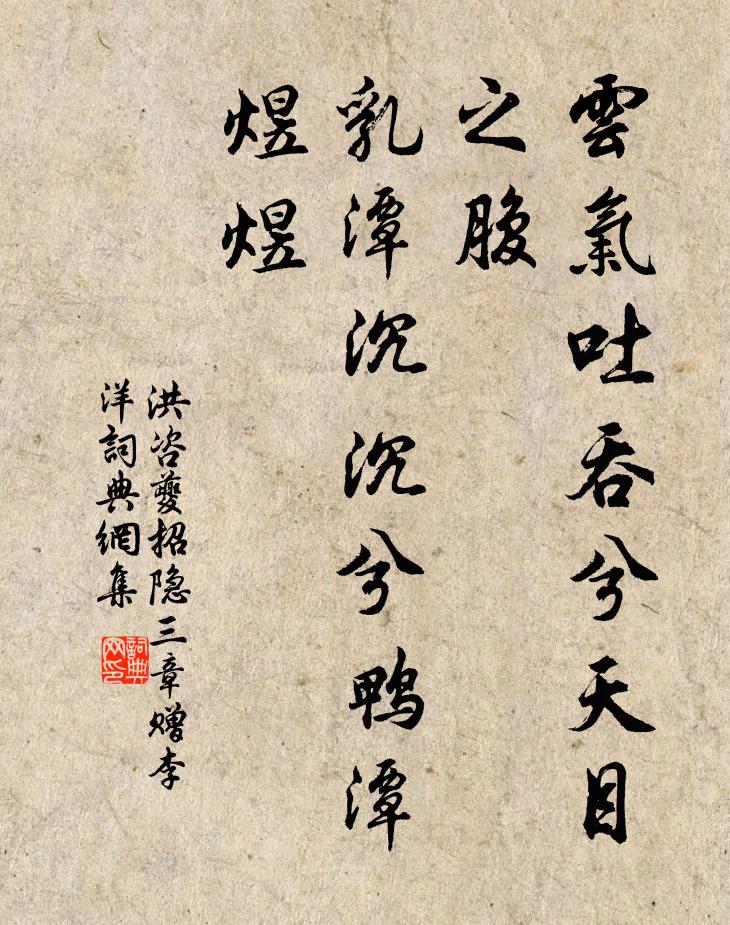 雲氣吐吞兮天目
之腹
乳潭沉沉兮鴨潭
煜煜
洪咨夔招隐三章赠李
洋詞典網集
詞典
网印